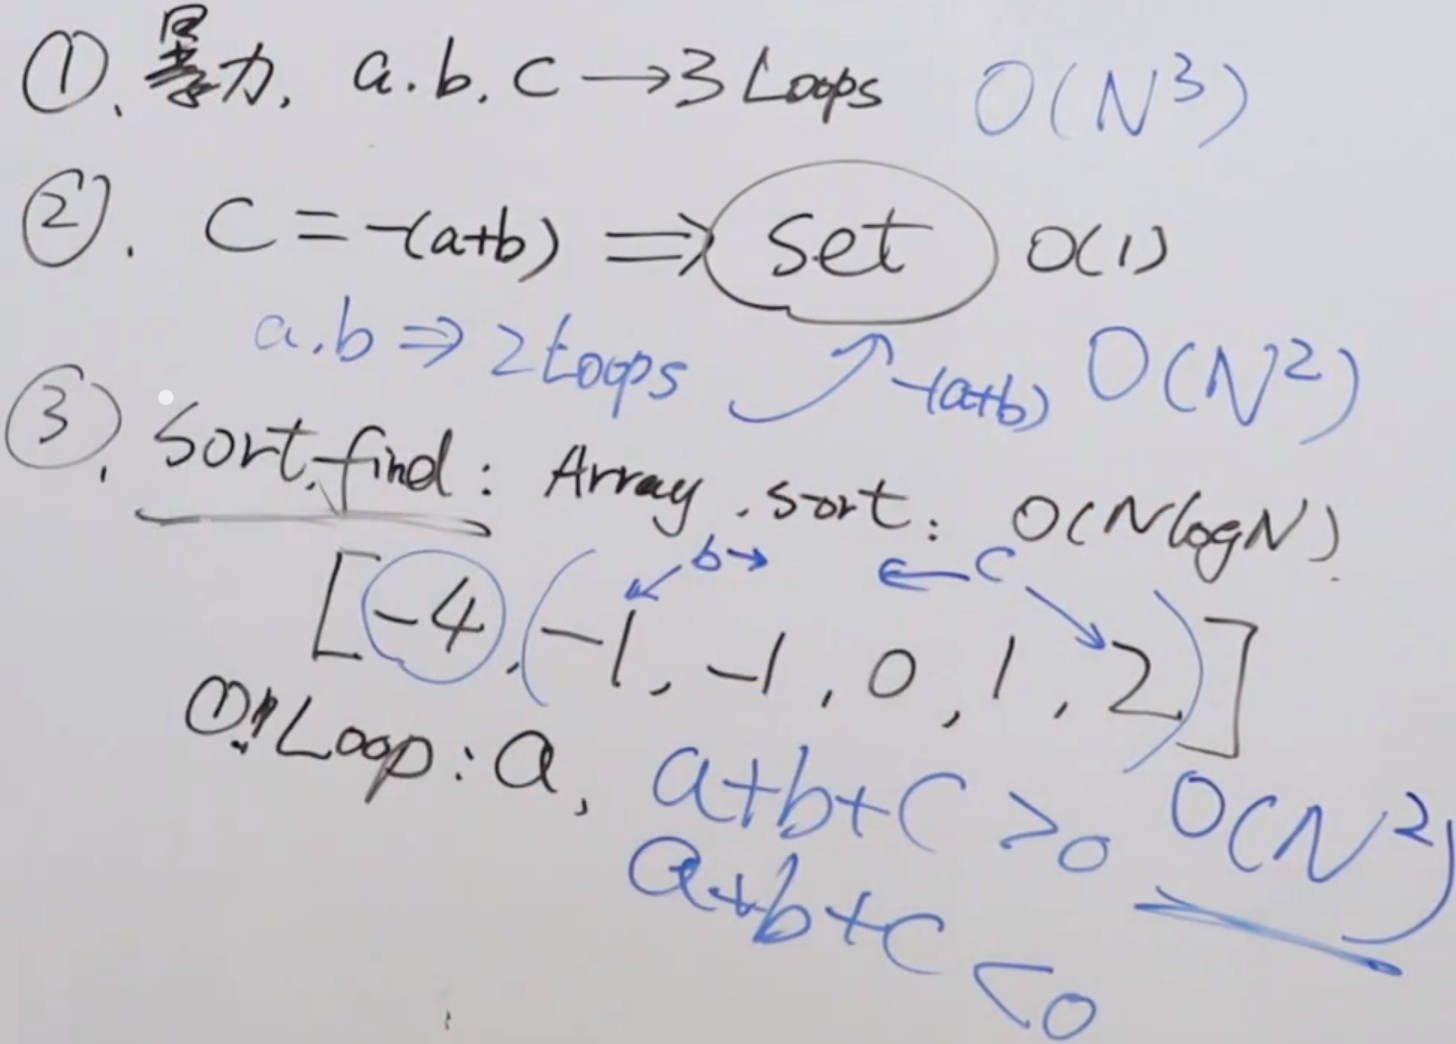 ①. 暴力. a.b.c → 3 Loops O(N³)
②. C = -(a+b) ⇒ set O(1)
a.b ⇒ 2 Loops -(a+b) O(N²)
③. Sort.find: Array.sort: O(NlogN).
b→ ←c
[-4, (-1, -1, 0, 1, 2)]
①. 1 Loop: a, a+b+c >0 O(N²)
a+b+c <0